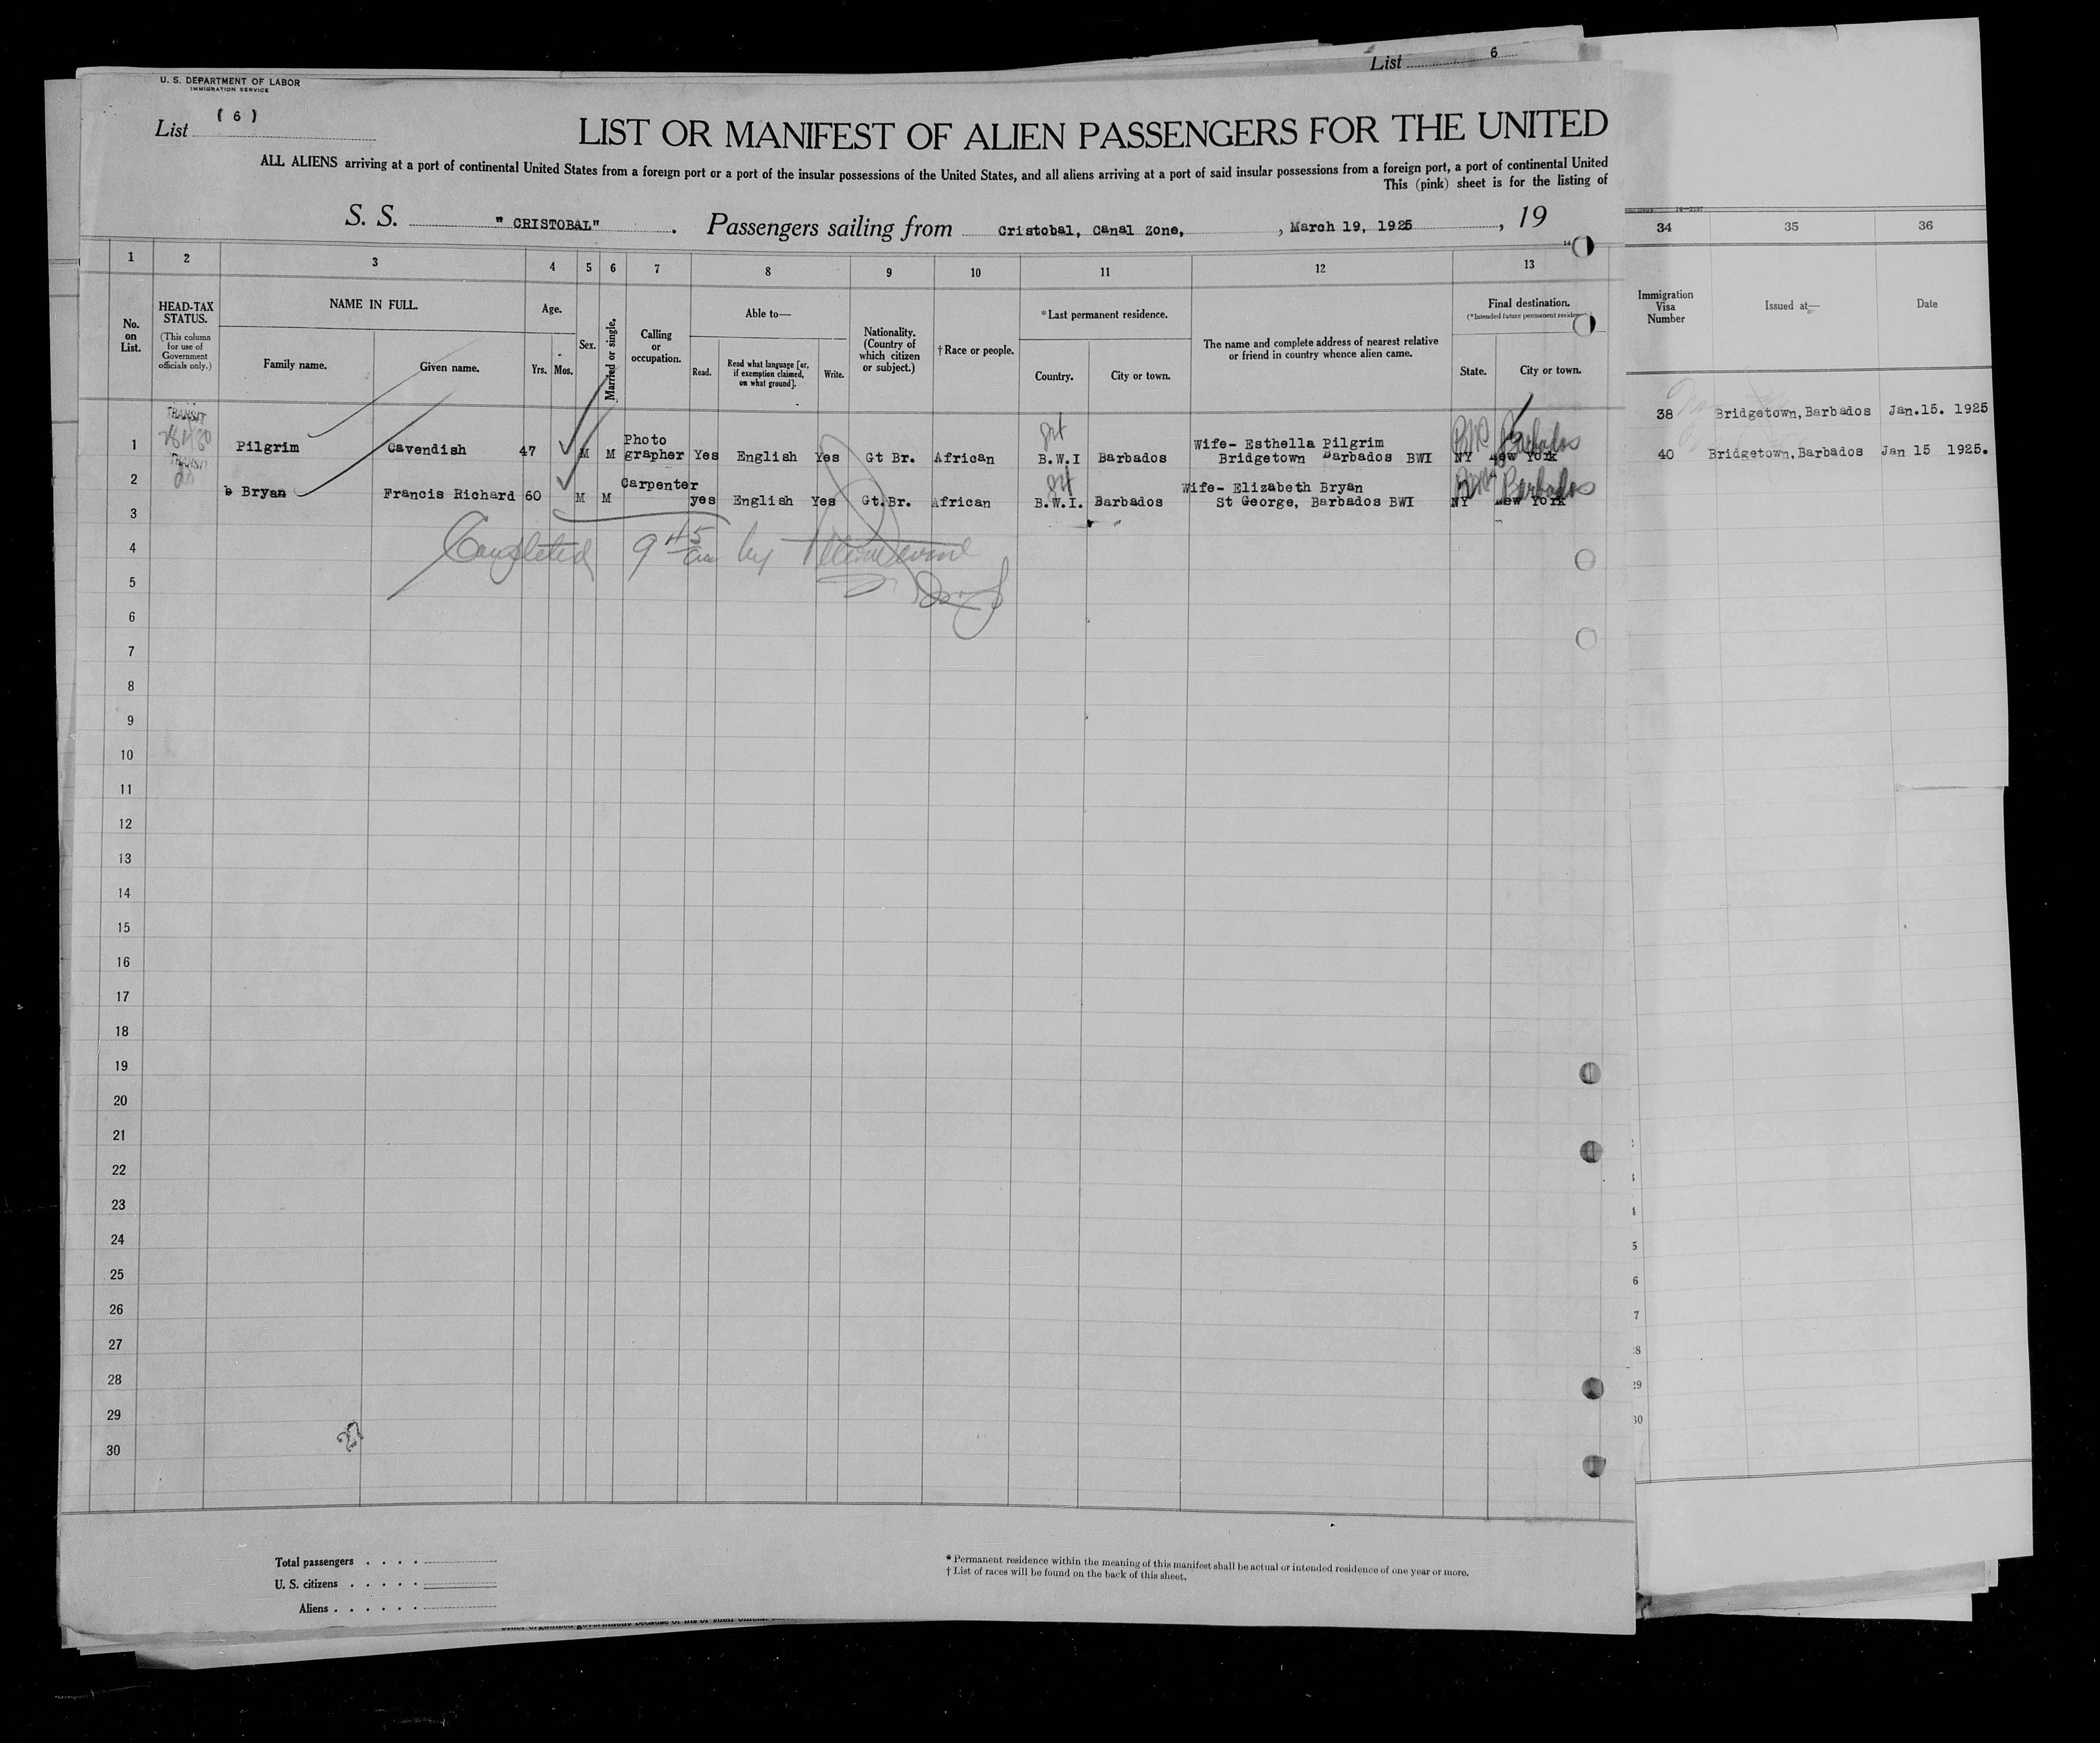 List 6
U. S. DEPARTMENT OF LABOR
IMMIGRATION SERVICE
List ( 6 )
LIST OR MANIFEST OF ALIEN PASSENGERS FOR THE UNITED
ALL ALIENS arriving at a port of continental United States from a foreign port or a port of the insular possessions of the United States, and all aliens arriving at a port of said insular possessions from a foreign port, a port of continental United
This (pink) sheet is for the listing of
S. S. "CRISTOBAL". Passengers sailing from Cristobal, Canal Zone, , March 19, 1925 , 19
1 2 3 4 5 6 7 8 9 10 11 12 13 14
34 35 36
No. on List.
HEAD-TAX STATUS.
(This column for use of Government officials only.)
NAME IN FULL.
Family name. Given name.
Age.
Yrs. Mos.
Sex.
Married or single.
Calling or occupation.
Able to—
Read. Read what language [or, if exemption claimed, on what ground]. Write.
Nationality. (Country of which citizen or subject.)
†Race or people.
*Last permanent residence.
Country. City or town.
The name and complete address of nearest relative or friend in country whence alien came.
Final destination.
(*Intended future permanent residence.)
State. City or town.
Immigration Visa Number
Issued at—
Date
TRANSIT
1 Pilgrim Cavendish 47 M M Photo grapher Yes English Yes Gt Br. African B.W.I Barbados Wife- Esthella Pilgrim Bridgetown Barbados BWI NY New York Barbados
38 Bridgetown, Barbados Jan.15. 1925
TRANSIT
2 Bryan Francis Richard 60 M M Carpenter yes English Yes Gt.Br. African B.W.I. Barbados Wife- Elizabeth Bryan St George, Barbados BWI NY New York Barbados
40 Bridgetown, Barbados Jan 15 1925.
3
4 Completed 9 45 am by
5
6
7
8
9
10
11
12
13
14
15
16
17
18
19
20
21
22
23
24
25
26
27
28
29
30
Total passengers . . . .
U. S. citizens . . . . .
Aliens . . . . . .
* Permanent residence within the meaning of this manifest shall be actual or intended residence of one year or more.
† List of races will be found on the back of this sheet.